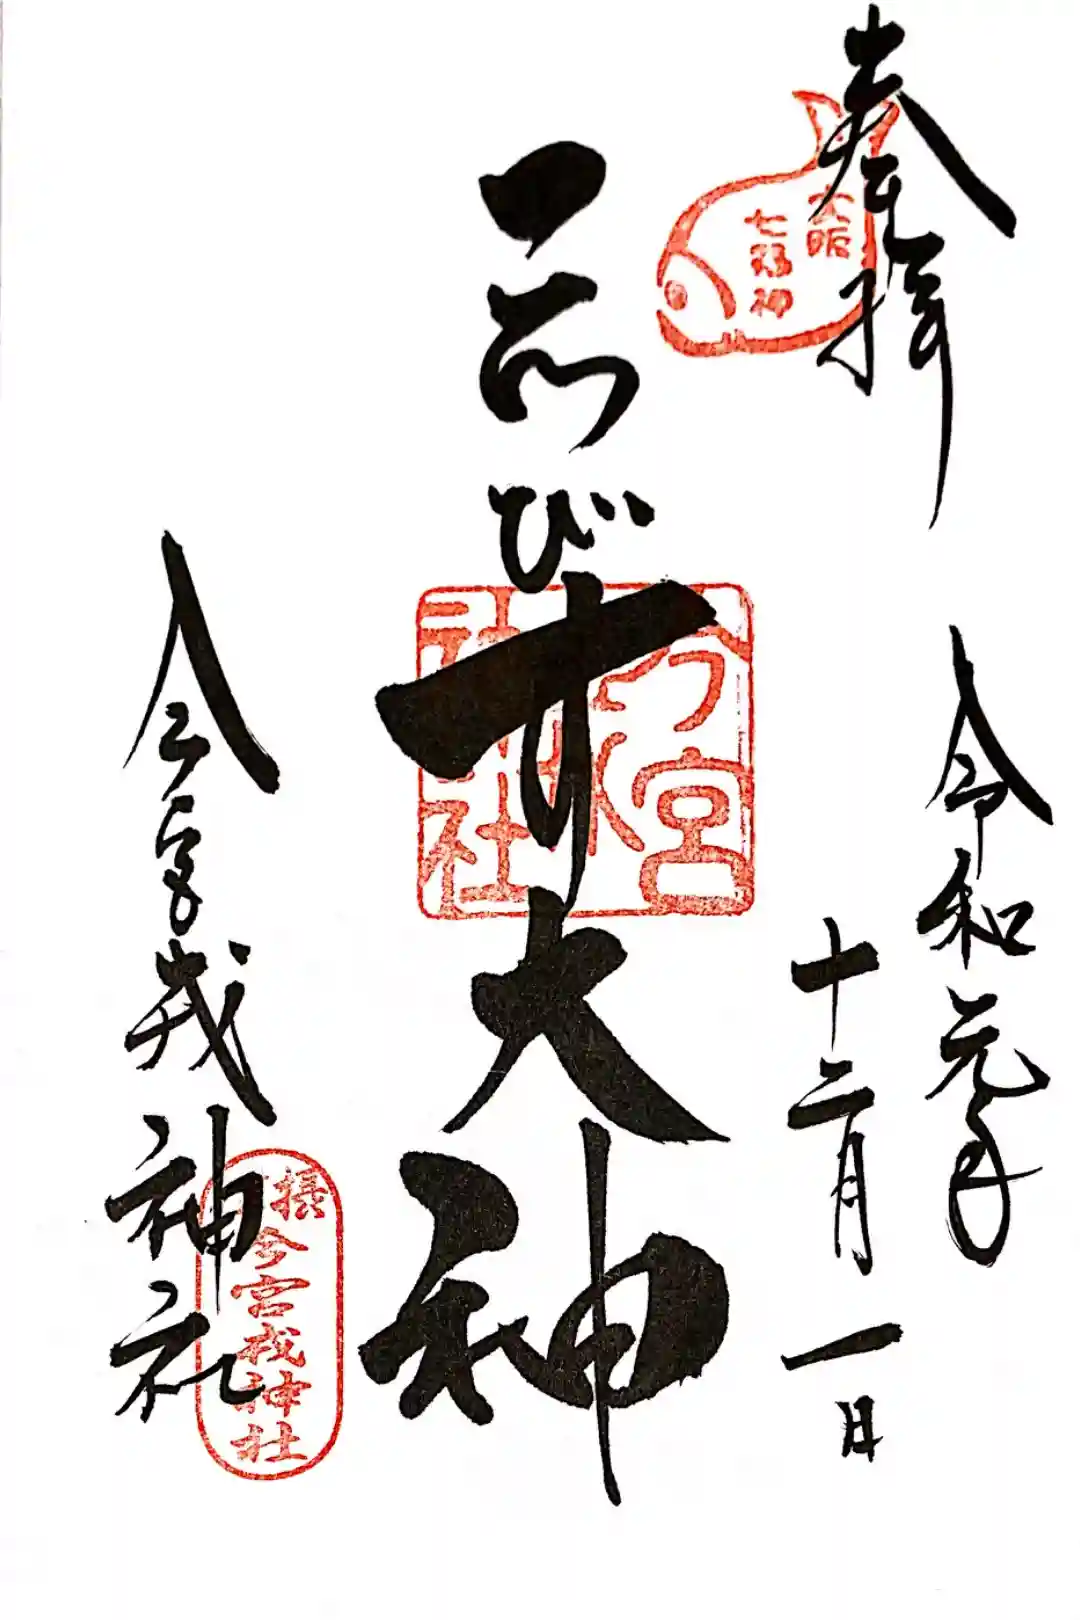 奉拝
大阪
七福神
令和元年
十二月一日
ゑびす大神
今宮
社
今宮戎神社
摂
今宮戎神社